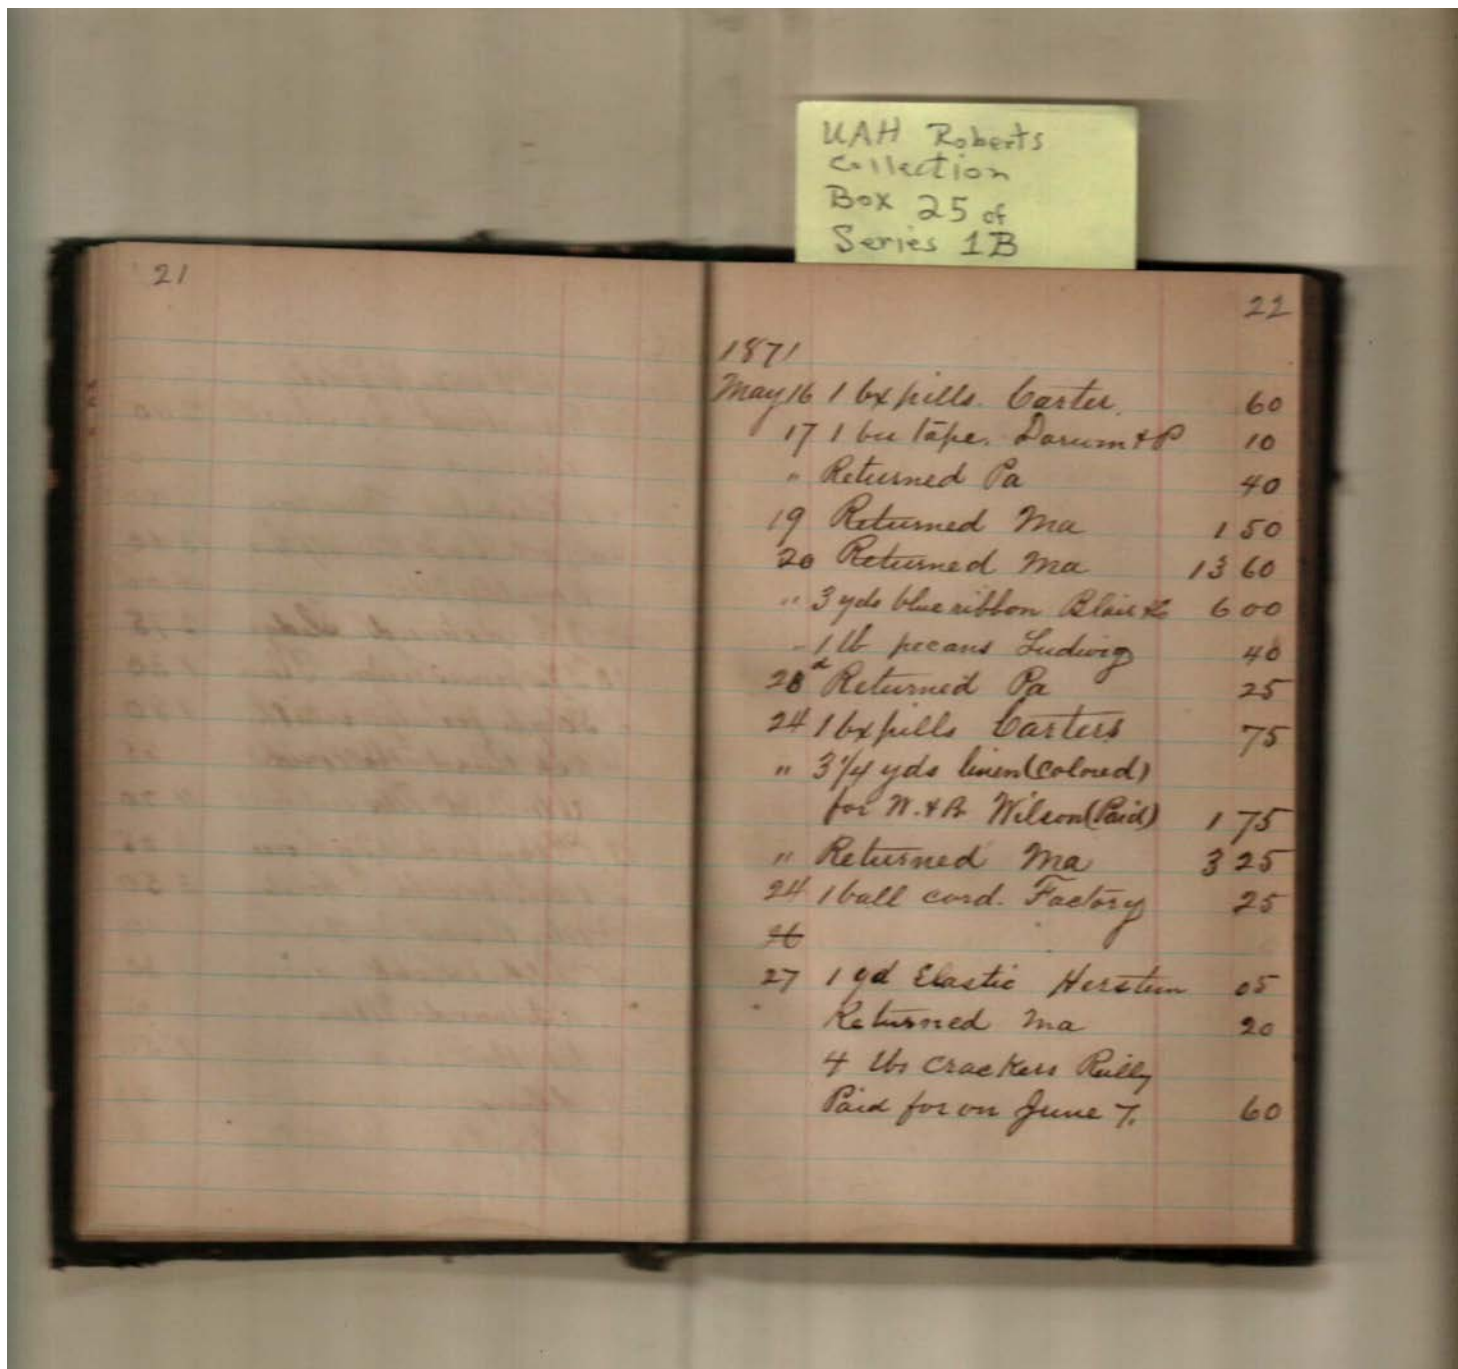 UAH Roberts
Collection
Box 25 of
Series 1B
21
22
1871
May 16 1 bx pills. Carter. 60
17 1 bu tape. &P 10
" Returned Pa 40
19 Returned Ma 1 50
20 Returned Ma 13 60
" 3 yds blue ribbon Blair & Co 6 00
" 1 lb pecans Ludwig 40
Returned Pa 25
24 1 bx pills Carters 75
" 3 1/4 yds linen (Colored)
for W. & B. Wilson (Paid) 1 75
" Returned Ma 3 25
24 1 ball cord. Factory 25
27 1 yd Elastic Herstein 05
Returned Ma 20
4 lbs crackers Reilly
Paid for on June 7. 60